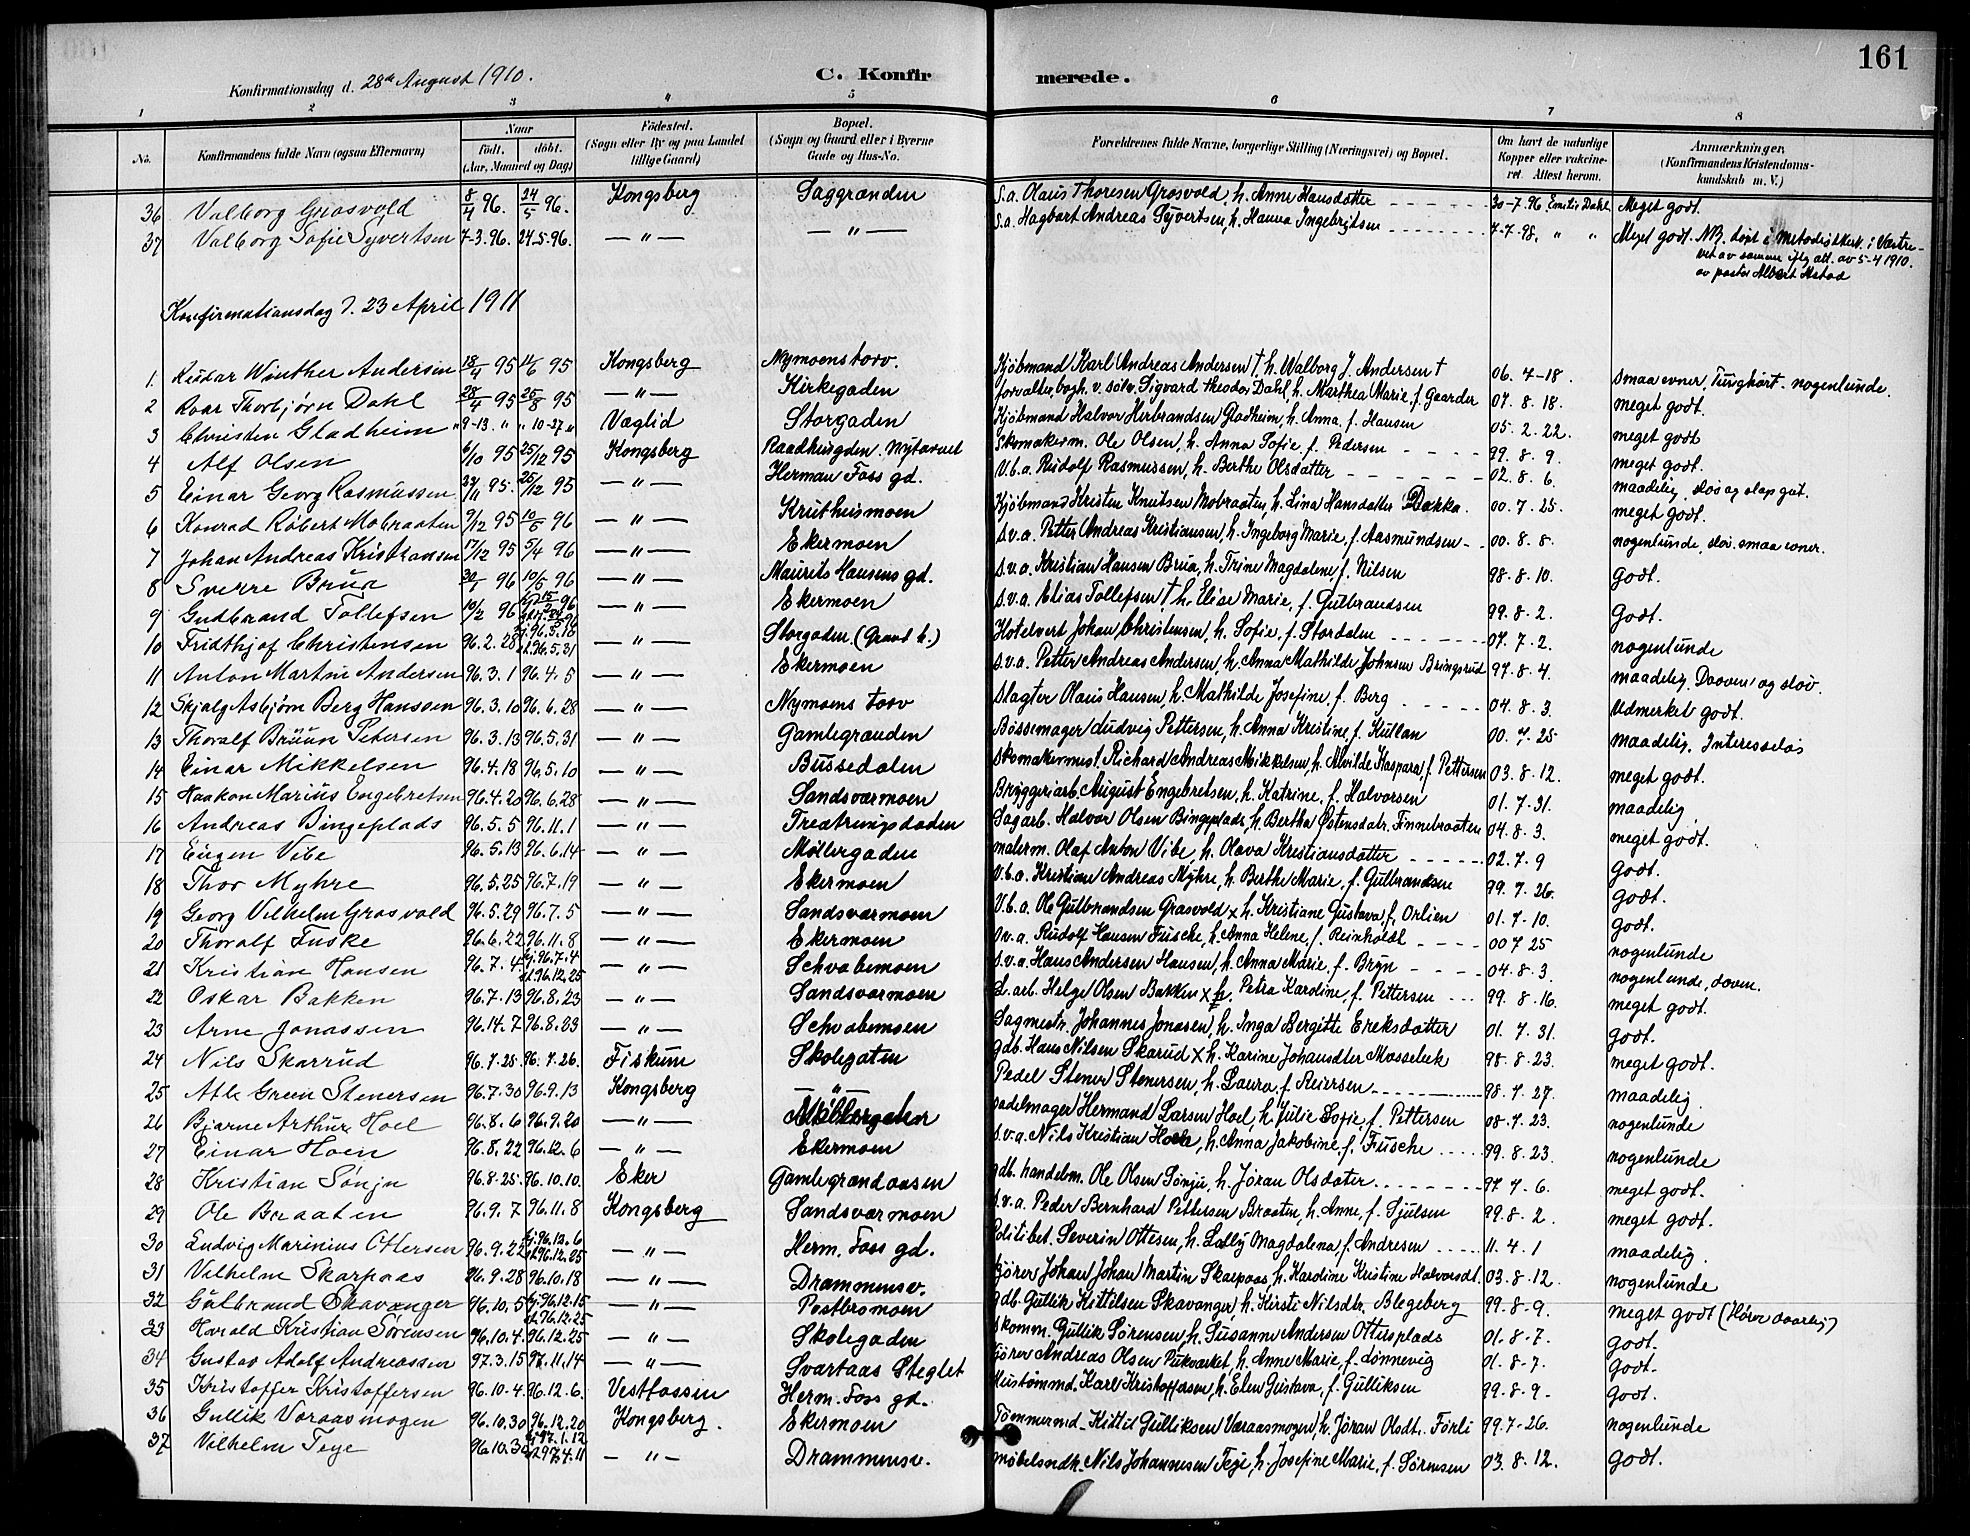 161
Konfirmationsdag d. 28de August 1910.
C. Konfirmerede.
1 2 3 4 5 6 7 8
No.
Konfirmandens fulde Navn (ogsaa Efternavn)
Naar
født. døbt.
(Aar, Maaned og Dag)
Fødested.
(Sogn eller By og paa Landet
tillige Gaard)
Bopæl.
(Sogn og Gaard eller i Byerne
Gade og Hus-No.
Forældrenes fulde Navne, borgerlige Stilling (Næringsvei) og Bopæl.
Om havt de naturlige
Kopper eller vakcine-
ret. Attest herom.
Anmærkninger.
(Konfirmandens Kristendoms-
kundskab m. V.)
36 Valborg Grosvold 8/4 96. 24/5 96. Kongsberg Saggrænden S.a. Olaus Thoresen Grosvold, h. Anne Hansdatter 30-7-96 Emilie Dahl Meget godt.
37 Valborg Sofie Syvertsen 7-3.96. 24-5-96. — " — — " — S.a. Hagbart Andreas Syvertsen, h. Hanna Ingebrigtsen 7-7-98. " " Meget godt. NB. døpt i Metodistkirk. i Vestre-
av samme iflg att. av 5-4 1910.
av pastor Albert
Konfirmationsdag d. 23 April 1911
1. Winther Andersen 18/4 95 95 Kongsberg Nymoens torv. Kjøbmand Karl Andreas Andersen † h. Walborg J. Andersen † 06. 4-18. Smaa evner, Tunghørt. nogenlunde.
2 Roar Thorbjørn Dahl 28/4 95 25/8 95 — " — Kirkegaden forvalter, bogh. v. sølv. Sigvard Theodor Dahl, h. Marthea Marie, f. Gaarder 07. 8. 18. meget godt.
3 Christen Gladheim " 9-13. " " 10-27 " Væglid Storgaden Kjøbmand Halvor Herbrandsen Gladheim, h. Anna, f. Hansen 05. 2. 22. meget godt
4 Alf Olsen 6/10 95 25/12 95 Kongsberg Raadhusgden. Nytorvet Skomakerm. Ole Olsen, h. Anna Sofie f. Pedersen 99. 8. 9. meget godt.
5 Einar Georg Rasmussen 24/11 95. 25/12 95 — " — Herman Foss gd. V.b.a. Rudolf Rasmussen, h. Berthe Olsdatter 02. 8. 6. maadelig, sløv og slap gut.
6 Konrad Robert Mobraaten 9/12 95 10/5 96 — " — Kruthusmoen Kjøbmand Kristen Knutsen Mobraaten, h. Lina Hansdatter Dakka. 00. 7. 25. meget godt.
7 Johan Andreas Kristiansen 17/12 95 5/4 96 — " — Ekermoen S.v.a. Petter Andreas Kristiansen, h. Ingeborg Marie, f. Aasmundsen 00. 8. 8. nogenlunde, sløv. smaa evner.
8 Sverre Brua 30/1 96 10/5 96 — " — Maurits Hansens gd. S.v.a. Kristian Hansen Brua, h. Trine Magdalene f. Nilsen 98. 8. 10. Godt.
9 Gudbrand Tollefsen 10/2 96 — " — Ekermoen S.v.a. Elias Tollefsen † h. Elise Marie, f. Gulbrandsen 99. 8. 2. Godt.
10 Fridthjof Christensen 96. 2. 28 hj. 96. 5. 18 st. 96. 5. 31 — " — Storgaden. (Grand h.) Hotelvert Johan Christensen, h. Sofie, f. Stordalen 07. 7. 2. nogenlunde
11 Anton Martin Andersen 96. 3. 1 96. 4. 5 — " — Ekermoen S.v.a. Petter Andreas Andersen, h. Anna Mathilde Johnsen Bringsrud 97. 8. 4. maadelig. Doven og sløv.
12 Skjalg Asbjørn Berg Hanssen 96. 3. 10 96. 6. 28 — " — Nymoens torv Slagter Olaus Hansen, h. Mathilde Josefine, f. Berg 04. 8. 3. Udmerket godt.
13 Thoralf Bruun Petersen 96. 3. 13 96. 5. 31 — " — Gamlegrænden Bøssemager Ludvig Pettersen, h. Anna Kristine, f. Kullan 00. 7. 25 maadelig. Interesseløs
14 Einar Mikkelsen 96. 4. 18 96. 5. 10 — " — Bussedalen Skomakermest. Richard Andreas Mikkelsen, h. Alvilde Kaspara, f. Pettersen 03. 8. 12. meget godt.
15 Haakon Marius Engebretsen 96. 4. 20 96. 6. 28 — " — Sandsværmoen Bryggeriarb. August Engebretsen, h. Katrine, f. Halvorsen 01. 7. 31. maadelig
16 Andreas Bingeplads 96. 5. 5 96. 11. 1 — " — Sagarb. Halvor Olsen Bingeplads, h. Bertha Østensdatr. Finnebraaten 04. 8. 3. meget godt.
17 Eugen Vibe 96. 5. 13 96. 6. 14 — " — Møllergaden malerm. Olaf Anton Vibe, h. Olava Kristiansdatter 02. 7. 9 Godt.
18 Thor Myhre 96. 5. 25 96. 7. 19 — " — Ekermoen V.b.a. Kristian Andreas Myhre, h. Berthe Marie, f. Gulbrandsen 99. 7. 26. Godt.
19 Georg Vilhelm Grosvold 96. 5. 29 96. 7. 5 — " — Sandsværmoen V.b.a. Ole Gulbrandsen Grosvold x h. Kristiane Gustava, f. Orlien 01. 7. 10. Godt.
20 Thoralf Fuske 96. 6. 22 96. 11. 8 — " — Ekermoen S.v.a. Rudolf Hansen Fusche, h. Anna Helene, f. Reinholdt 00 7 25 nogenlunde
21 Kristian Hansen 96. 7. 4 hj. 96. 7. 4 st. 96. 12. 25 — " — Schvabemoen S.v.a. Hans Andersen Hansen, h. Anna Marie, f. Bryn 04. 8. 3. nogenlunde, doven.
22 Oskar Bakken 96. 7. 13 96. 8. 23 — " — Sandsværmoen S. arb. Helge Olsen Bakken x h. Petra Karoline, f. Pettersen 99. 8. 16. meget godt.
23 Arne Jonassen 96. 14. 7 96. 8. 23 — " — Schvabemoen Sagmestr. Johannes Jonasen, h. Inga Bergitte Ereksdatter 01. 7. 31. Godt.
24 Nils Skarrud 96. 7. 25. 96. 7. 26. Fiskum Skolegaten gdb. Hans Nilsen Skarud x h. Karine Johansdter Mossebek 98. 8. 23. meget godt.
25 Atle Green Stenersen 96. 7. 30 96. 9. 13 Kongsberg — " — Pedel Stener Stenersen, h. Laura, f. Reiersen 98. 7. 27. maadelig.
26 Bjarne Arthur Hoel 96. 8. 6 96. 9. 20 — " — Møllergaden Sadelmager Hermand Larsen Hoel, h. Julie Sofie, f. Pettersen 08. 7. 23. nogenlunde
27 Einar Hoen 96. 8. 22 96. 12. 6 — " — Ekermoen S.v.a. Nils Kristian Hoen, h. Anna Jakobine, f. Fusche 99. 8. 23. nogenlunde
28 Kristian Sønju 96. 8. 25. 96. 10. 10. Eker Gamlegrændaasen gdb. handelm. Ole Olsen Sønju, h. Jøran Olsdater 97 7. 6. meget godt.
29 Ole Braaten 96. 9. 7 96. 11. 8 Kongsberg Sandsværmoen S.v.a. Peder Bernhard Pettersen Braaten, h. Anne, f. Tjulsen 99. 8. 2. meget godt.
30 Ludvig Marinius Ottersen 96. 9. 22 hj. 96. 12. 6 st. 96. 12. 25 — " — Herm. Foss gd. Politibet. Severin Ottesen, h. Lally Magdalena, f. Andresen 11. 4. 1 maadelig.
31 Vilhelm Skarpaas 96. 9. 28 96. 10. 18 — " — Drammensv. Kjører Johan Johan Martin Skarpaas, h. Karoline Kristine Halvorsdt. 03. 8. 12. nogenlunde
32 Gulbrand Skavanger 96. 10. 5 hj. 96. 12. 15 st. 96. 12. 25 — " — Postbromoen gdb. Gullik Kittelsen Skavanger, h. Kirsti Nilsdtr. Blegeberg 99. 8. 9. meget godt (Hører daarlig)
33 Harald Kristian Sørensen 96. 10. 4. 96. 12. 25 — " — Skolegaden Skomm. Gullik Sørensen, h. Susanne Andersen Ottersplads 01. 8. 7. Godt.
34 Gustav Adolf Andreassen 97. 3. 15 97. 11. 14 — " — Svartaas Steglet Kjører Andreas Olsen Pukværket, h. Anne Marie, f. Lønnevig 01. 8-7. Godt.
35 Kristoffer Kristoffersen 96. 10. 4. 96. 12. 6. Vestfossen Herm. Foss gd. Hustømmd. Karl Kristoffersen, h. Elen Gustava, f. Gulliksen 99. 8. 9. Godt.
36 Gullik Varaasmogen 96. 10. 30 96. 12. 20 Kongsberg. Ekermoen Tømmermd. Kittil Gulliksen Væraasmogen, h. Jøran Olsdt. Førli 99. 7-26. nogenlunde
37 Vilhelm Teje 96. 10. 30 hj. 97. 1. 12 st. 97. 4. 11 — " — Drammensv. Møbelsndk. Nils Johannesen Teje, h. Josefine Marie, f. Sørensen 03. 8. 12. Godt.